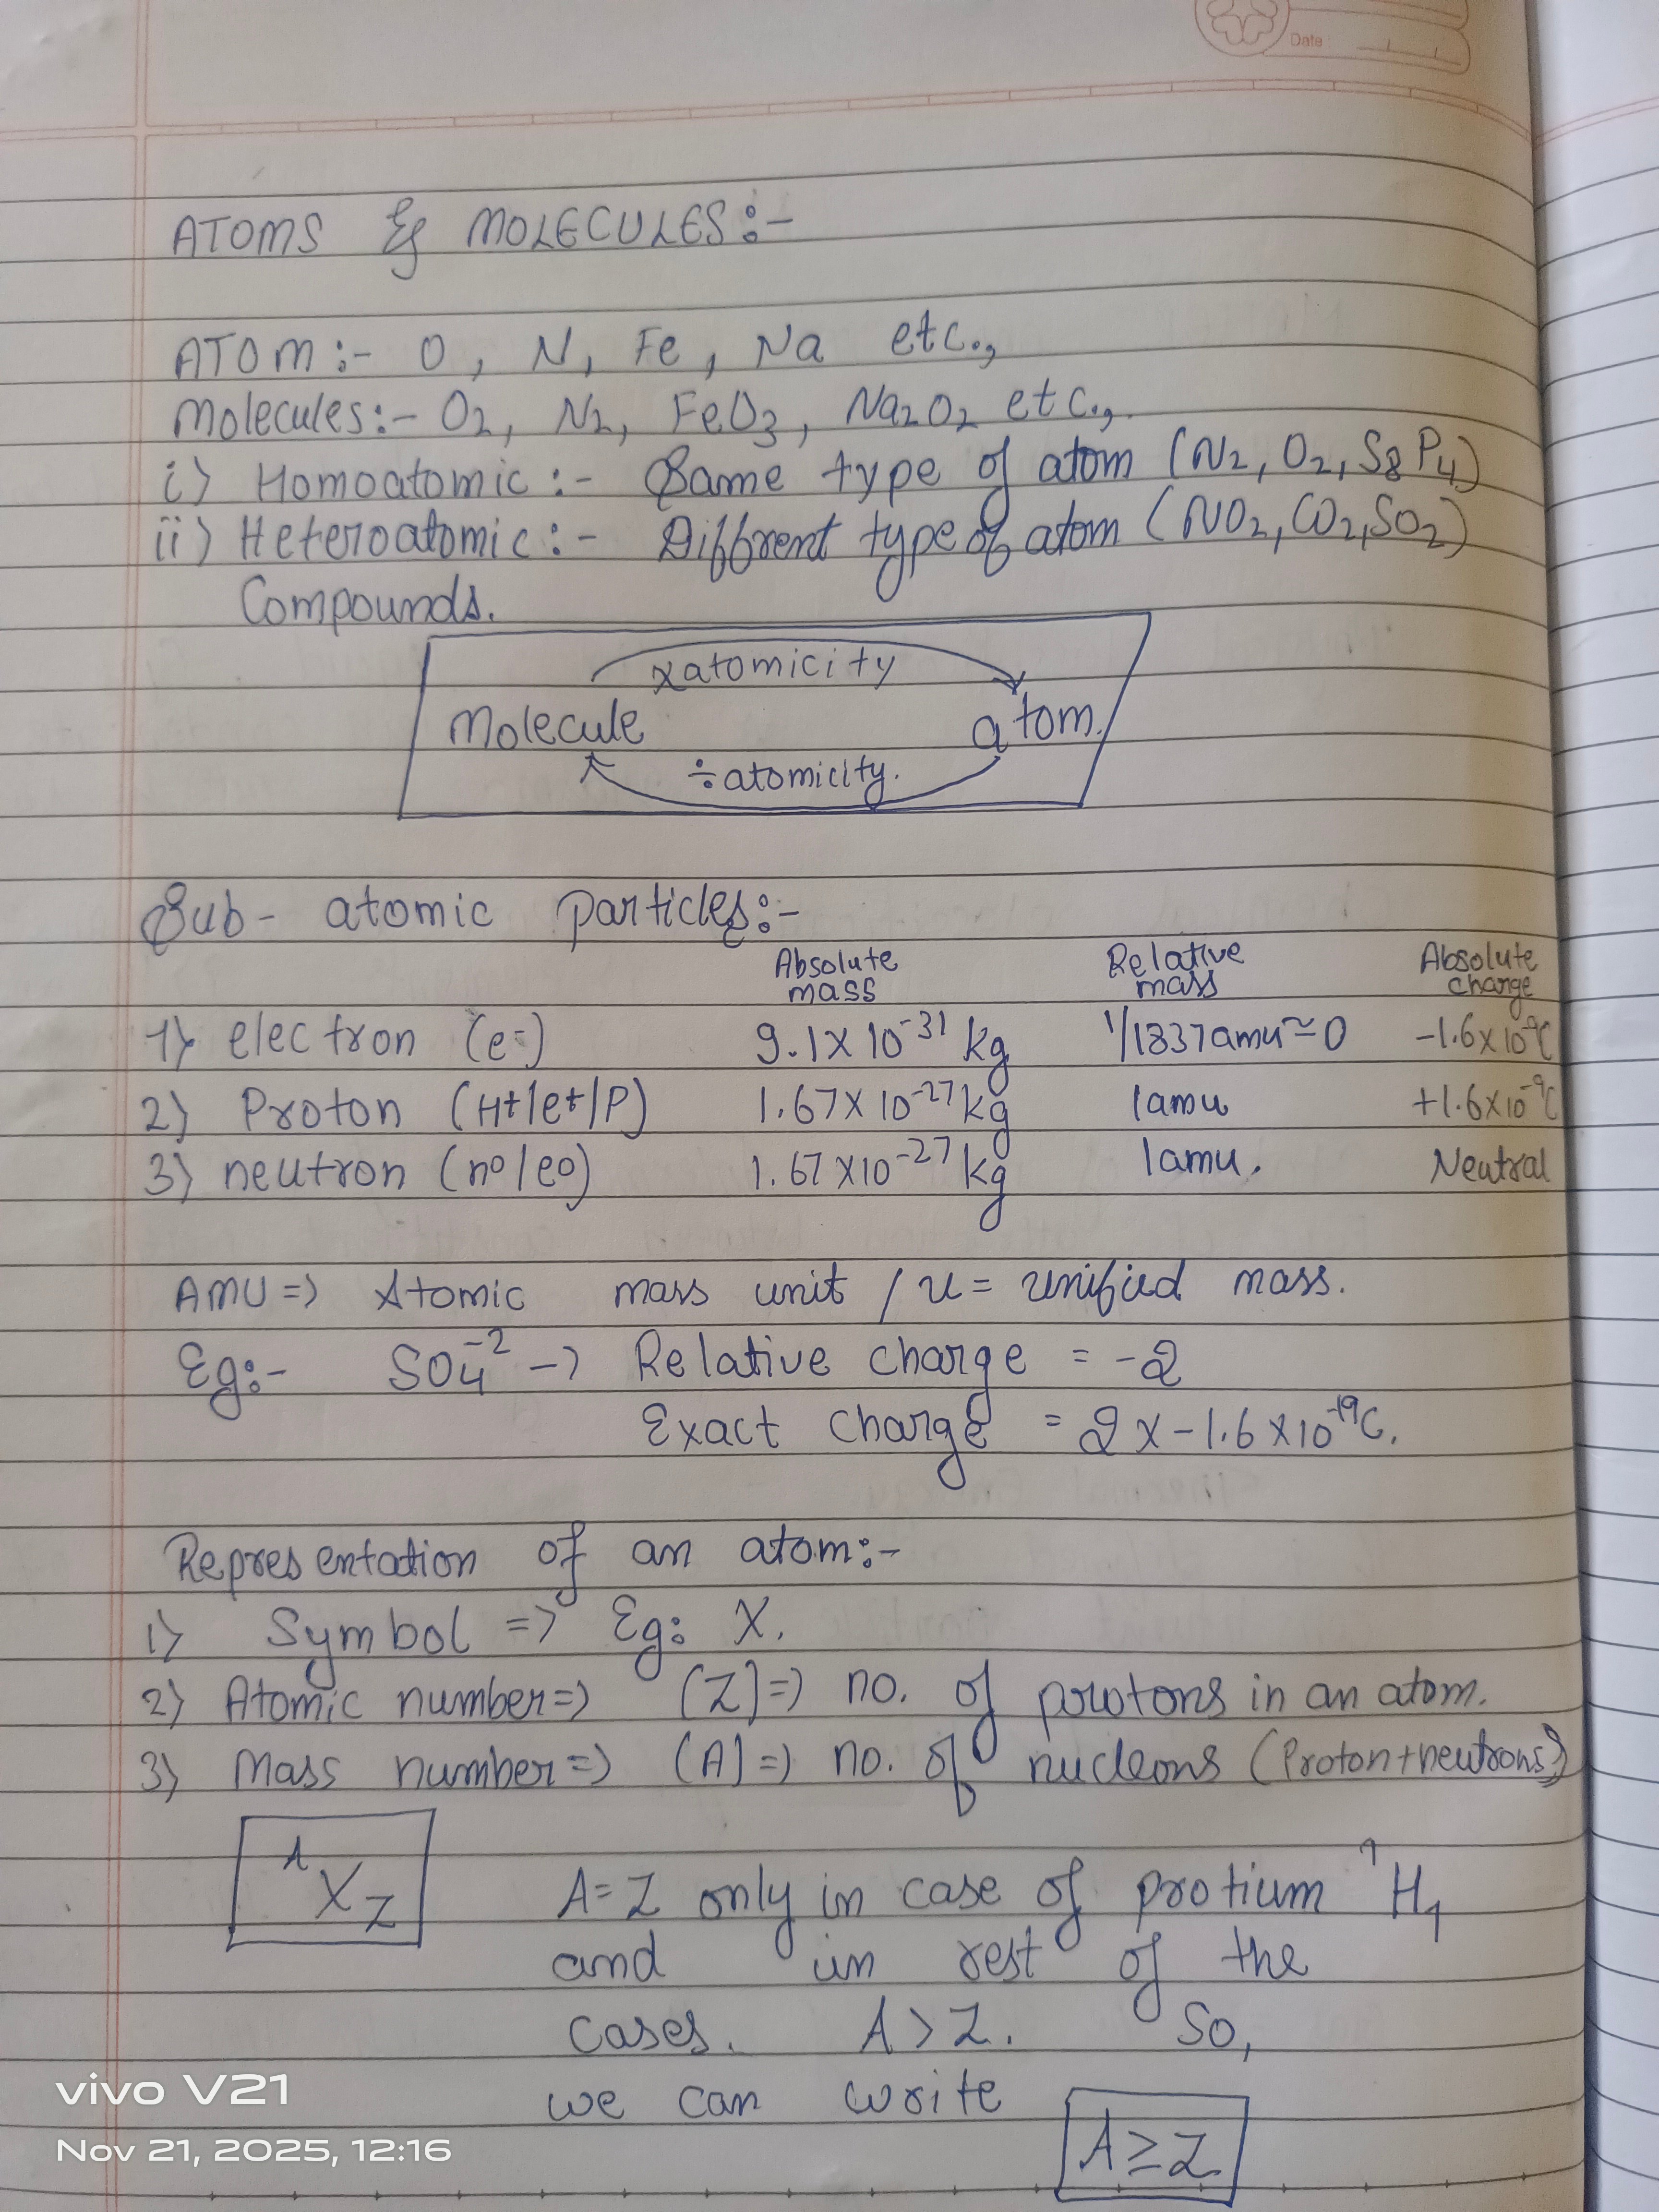 Date
ATOMS & MOLECULES:-
ATOM:- O, N, Fe, Na etc.,
Molecules:- O2, N2, FeO3, Na2O2 etc.,
i) Homoatomic:- Same type of atom (N2, O2, S8 P4)
ii) Heteroatomic:- Diffrent type of atom (NO2, CO2, SO2)
Compounds.
xatomicity
Molecule atom.
÷atomicity.
Sub-atomic particles:-
Absolute mass Relative mass Absolute charge
1) electron (e-) 9.1x10^-31 kg 1/1837amu≈0 -1.6x10^-9C
2) Proton (H+/e+/P) 1.67x10^-27kg 1amu +1.6x10^-9C
3) neutron (n0/e0) 1.67x10^-27kg 1amu. Neutral
AMU=> Atomic mass unit / u= unified mass.
Eg:- SO4^-2 -> Relative charge = -2
Exact charge = 2x-1.6x10^-19C.
Representation of an atom:-
1) Symbol => Eg: X.
2) Atomic number=> (Z)=> no. of protons in an atom.
3) Mass number=> (A)=> no. of nucleons (Proton+neutrons)
^A X_Z
A=Z only in case of protium ^1H_1
and in rest of the
cases. A>Z. So,
we can write
A≥Z
vivo V21
Nov 21, 2025, 12:16